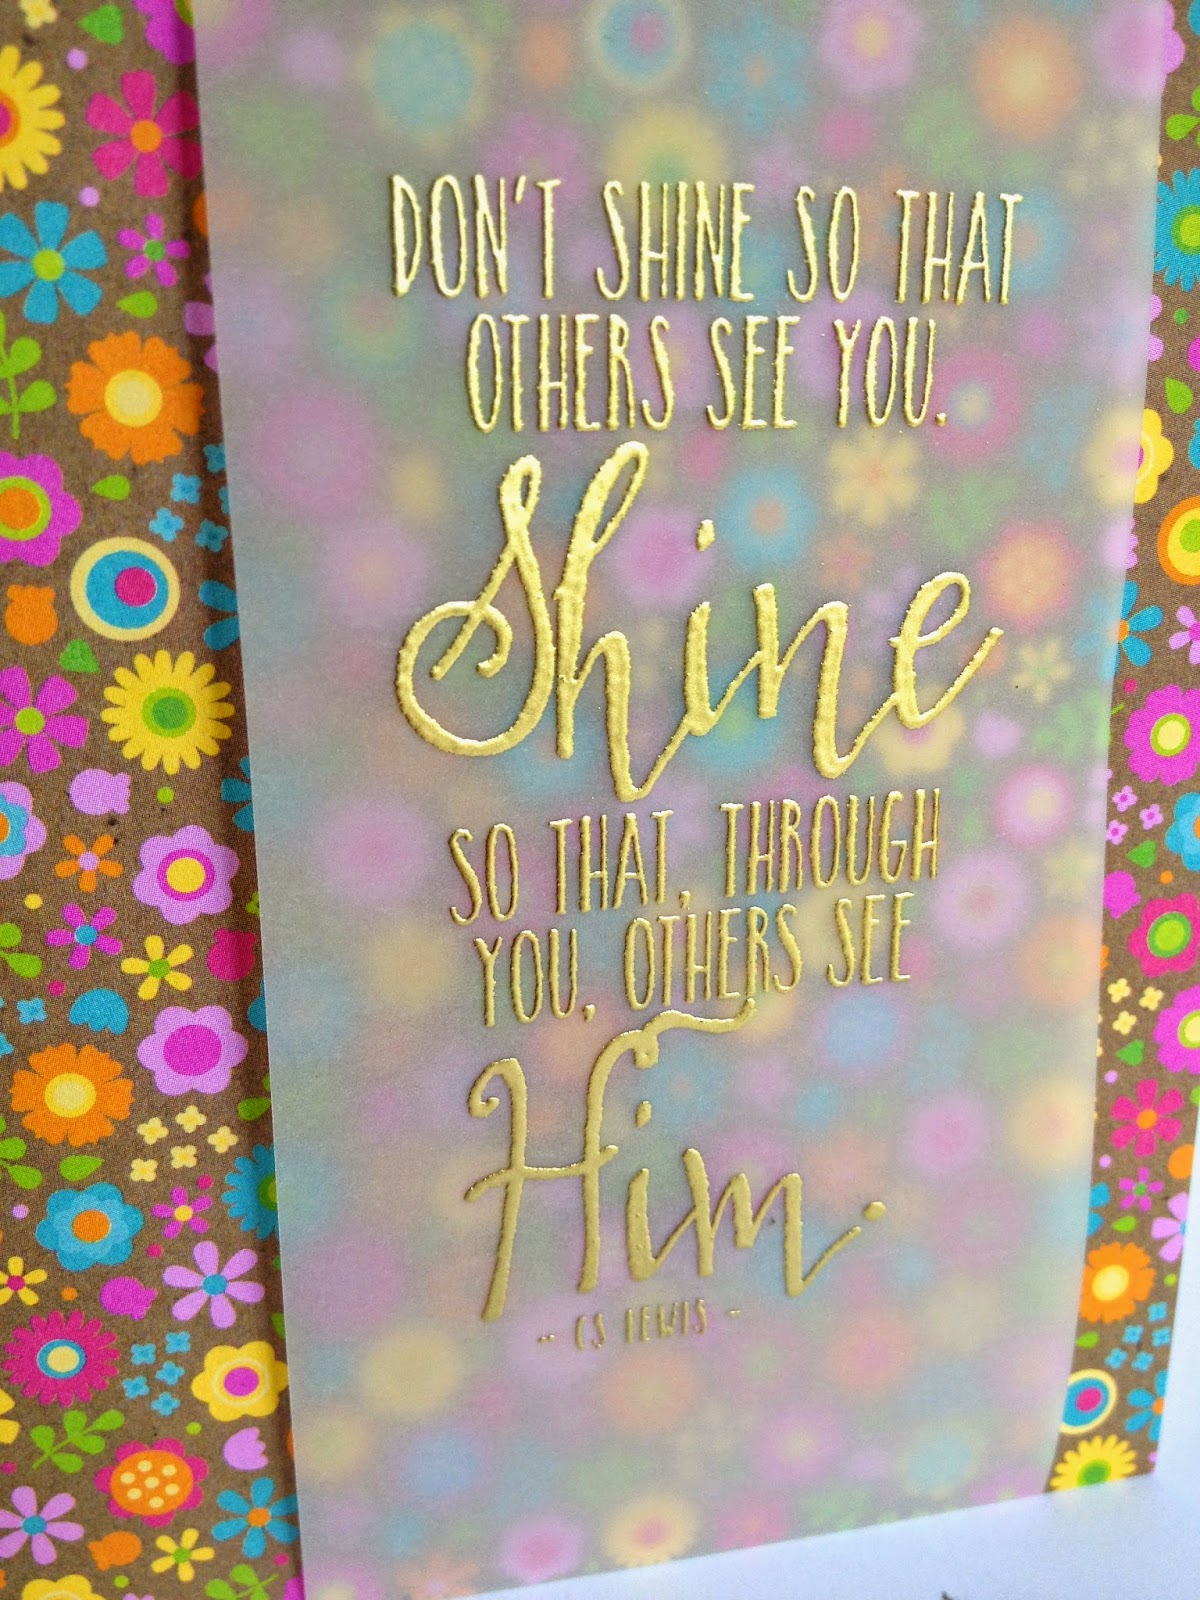 DON'T SHINE SO THAT
OTHERS SEE YOU.
Shine
SO THAT, THROUGH
YOU, OTHERS SEE
Him.
- CS LEWIS -